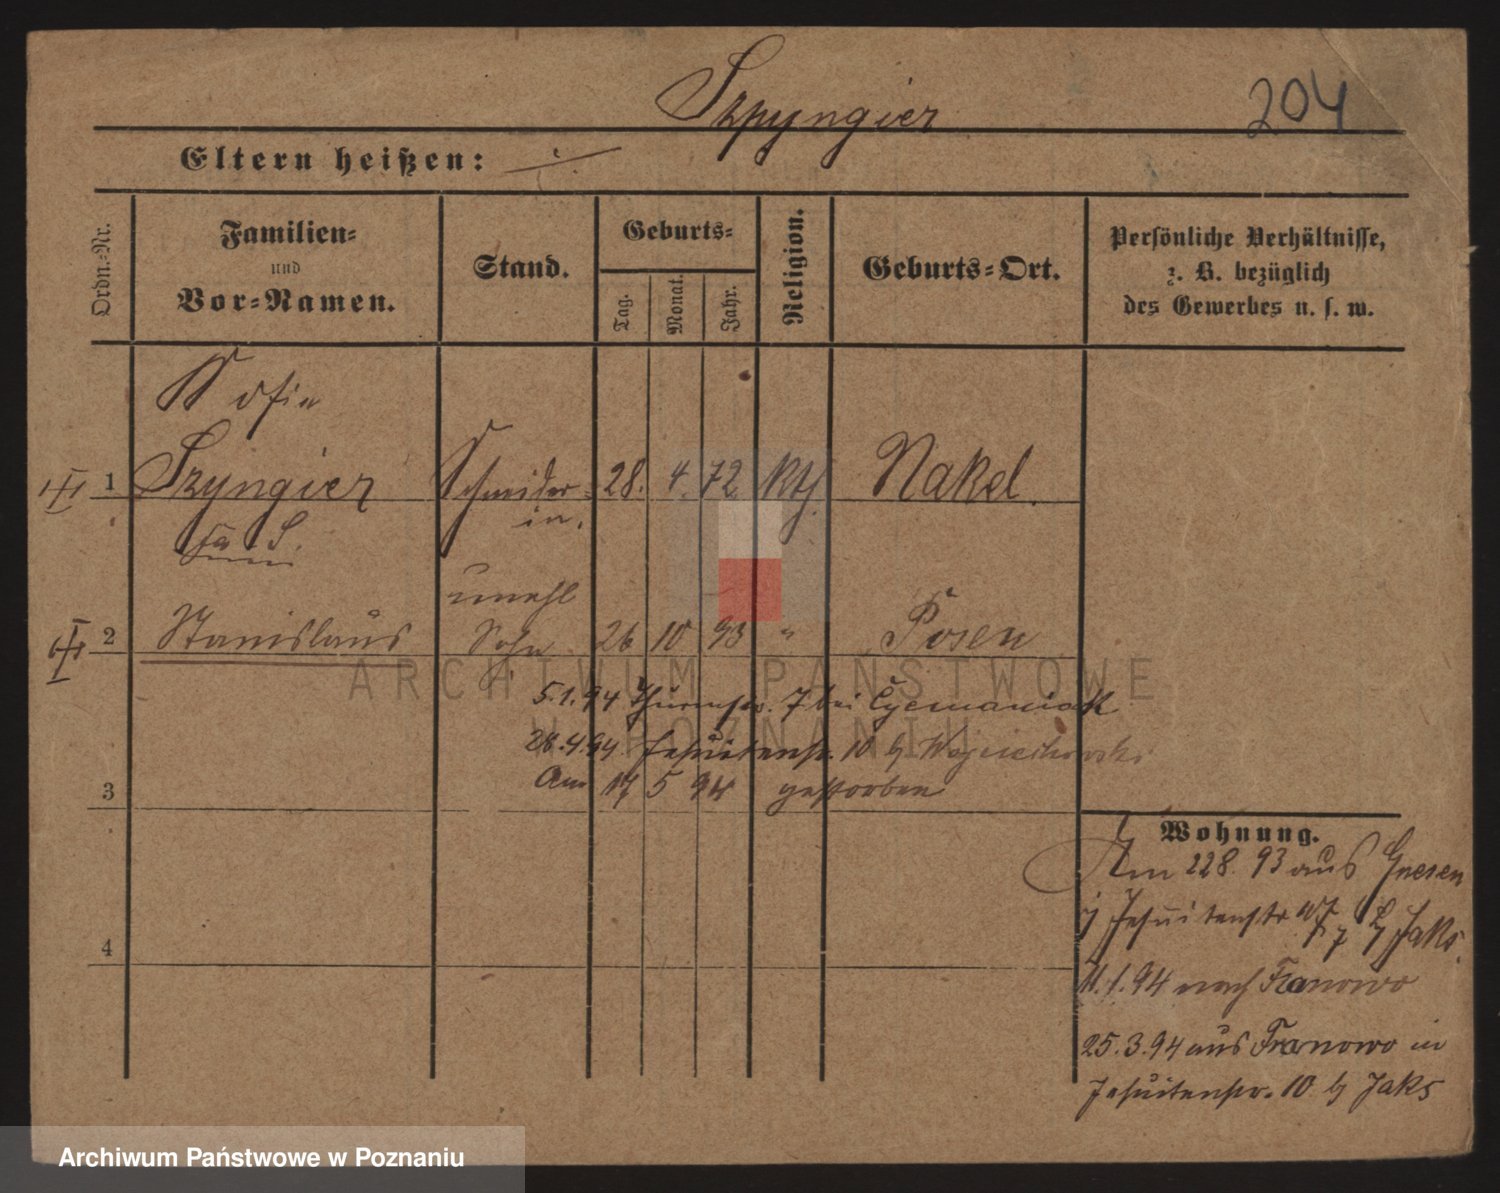 Szpyngier
204
Eltern heißen: ÷
Ordn.-Nr.
Familien-
und
Vor-Namen.
Stand.
Geburts-
Tag.
Monat.
Jahr.
Religion.
Geburts-Ort.
Persönliche Verhältnisse,
z. B. bezüglich
des Gewerbes u. s. w.
Sofie
1 Szyngier Schneider- 28. 4. 72 kth. Nakel.
in.
unehl
2 Stanislaus Sohn 26 10 93 " Posen
ARCHIWUM PAŃSTWOWE
W POZNANIU
5.1.94 Thurmstr. 7 bei
28.4.94 Jesuitenstr. 10 b/ Wojciechowski
Am 17 5 94 gestorben
3
4
Wohnung.
Am 228. 93 aus Gnesen
Jesuitenstr Jaks.
11.1.94 nach Franowo
25.3.94 aus Franowo in
Jesuitenstr. 10 b/ Jaks
Archiwum Państwowe w Poznaniu